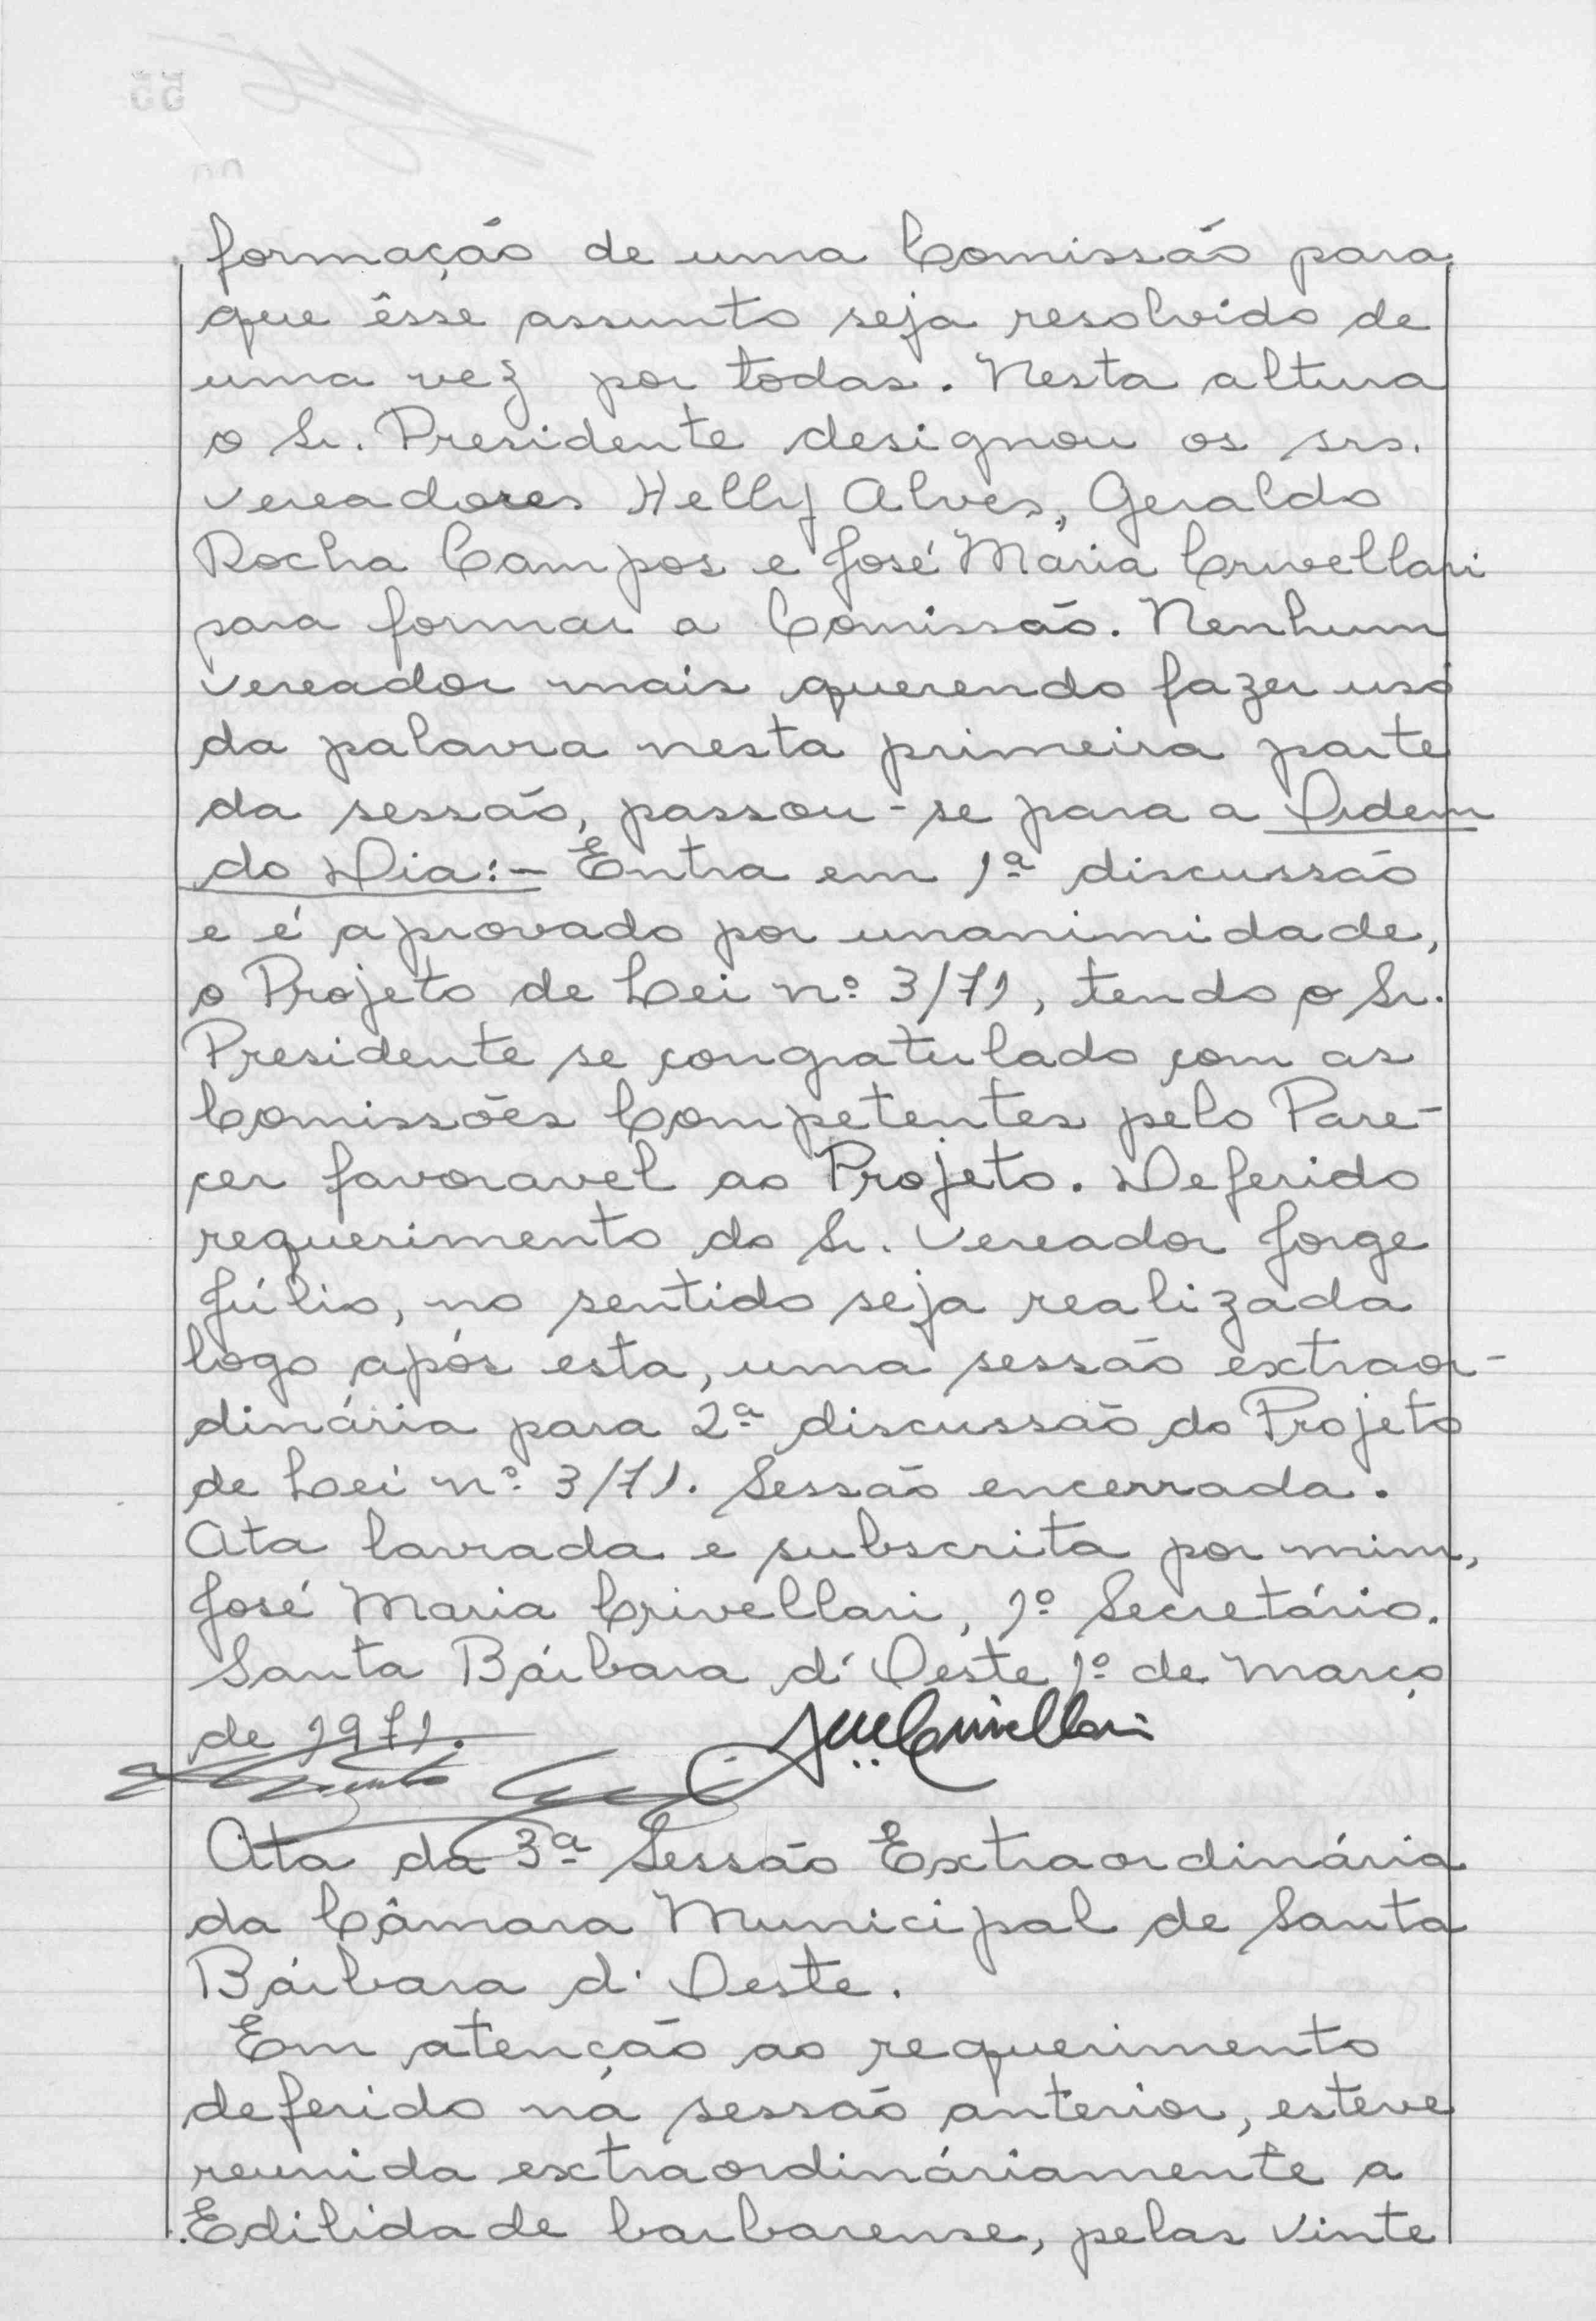 formação de uma Comissão para
que êsse assunto seja resolvido de
uma vez por todas. Nesta altura
o Sr. Presidente designou os srs.
Vereadores Helly Alves, Geraldo
Rocha Campos e José Maria Crivellari
para formar a Comissão. Nenhum
Vereador mais querendo fazer uso
da palavra nesta primeira parte
da sessão, passou-se para a Ordem
do Dia:- Entra em 1ª discussão
e é aprovado por unanimidade,
o Projeto de Lei nº 3/71, tendo o Sr.
Presidente se congratulado com as
Comissões Competentes pelo Pare-
cer favoravel ao Projeto. Deferido
requerimento do Sr. Vereador Jorge
Júlio, no sentido seja realizada
logo após esta, uma sessão extraor-
dinária para 2ª discussão do Projeto
de Lei nº 3/71. Sessão encerrada.
Ata lavrada e subscrita por mim,
José Maria Crivellari, 1º Secretário.
Santa Bárbara d'Oeste 1º de Março
de 1971.
Ata da 3ª Sessão Extraordinária
da Câmara Municipal de Santa
Bárbara d'Oeste.
Em atenção ao requerimento
deferido na sessão anterior, esteve
reunida extraordináriamente a
Edilidade barbarense, pelas vinte